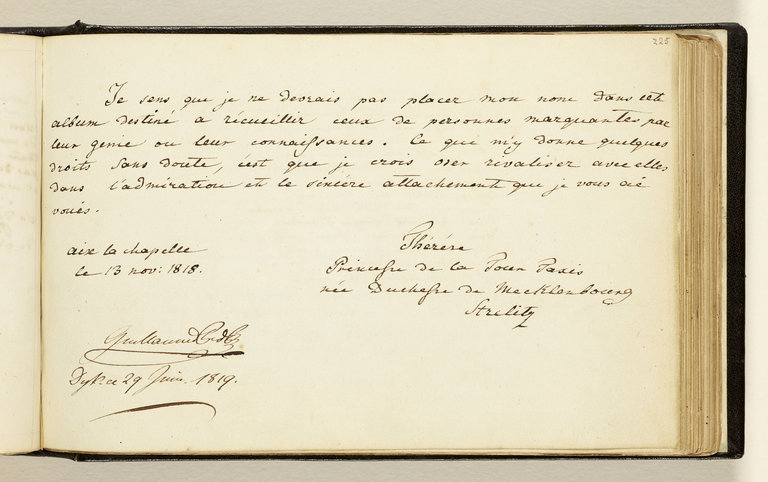 225
Je sens que je ne devrais pas placer mon nom dans cet
album destiné a récueillir ceux de personnes marquantes par
leur genie ou leur connaissances. Ce que m'y donne quelques
droits sans doute, c'est que je crois oser rivaliser avec elles
dans l'admiration et le sincére attachement que je vous ai
voués.
aix la chapelle
le 13 nov: 1818.
Thérése
Princesse de la Tour Taxis
née Duchesse de Mecklenbourg
Strelitz
Guillaume
Dyk ce 29 Juin. 1819.